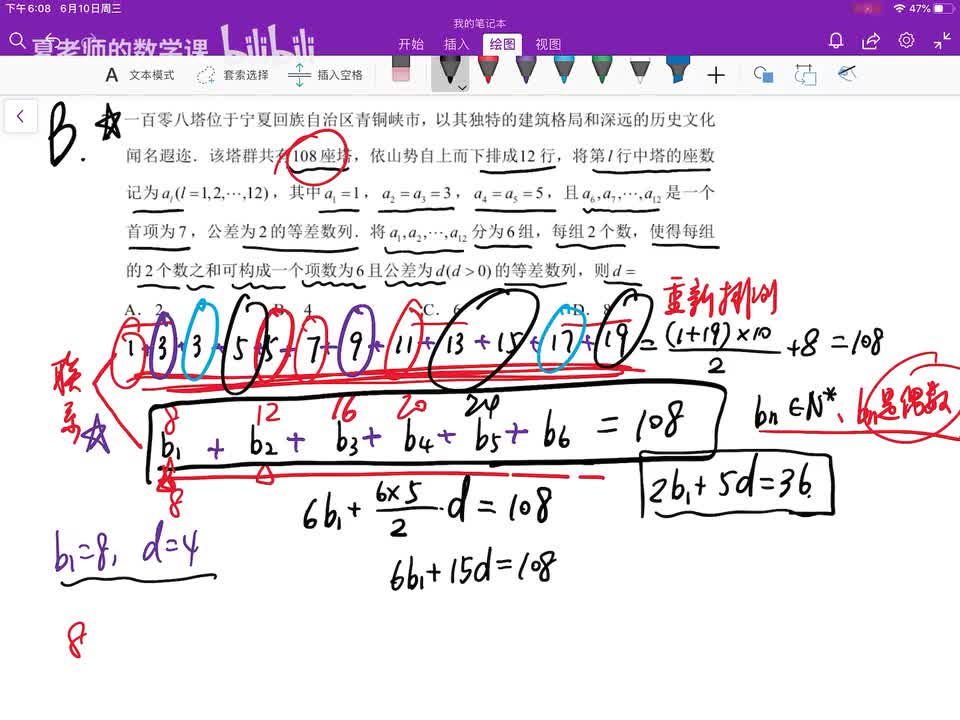 下午6:08 6月10日周三
47%
我的笔记本
夏老师的数学课 bilibili
开始 插入 绘图 视图
A 文本模式 套索选择 插入空格
B. ☆
一百零八塔位于宁夏回族自治区青铜峡市，以其独特的建筑格局和深远的历史文化
闻名遐迩．该塔群共有108座塔，依山势自上而下排成12行，将第l行中塔的座数
记为a_l(l=1,2,⋯,12)，其中a₁=1，a₂=a₃=3，a₄=a₅=5，且a₆,a₇,⋯,a₁₂是一个
首项为7，公差为2的等差数列．将a₁,a₂,⋯,a₁₂分为6组，每组2个数，使得每组
的2个数之和可构成一个项数为6且公差为d(d>0)的等差数列，则d=
A．2 B．4 C．6 D．8
重新排列
1+3+3+5+5+7+9+11+13+15+17+19=(1+19)×10/2+8=108
联系☆
8 12 16 20 24
b₁+b₂+b₃+b₄+b₅+b₆=108
bₙ∈N*、bₙ是偶数
8
2b₁+5d=36
6b₁+6×5/2·d=108
b₁=8, d=4
6b₁+15d=108
8